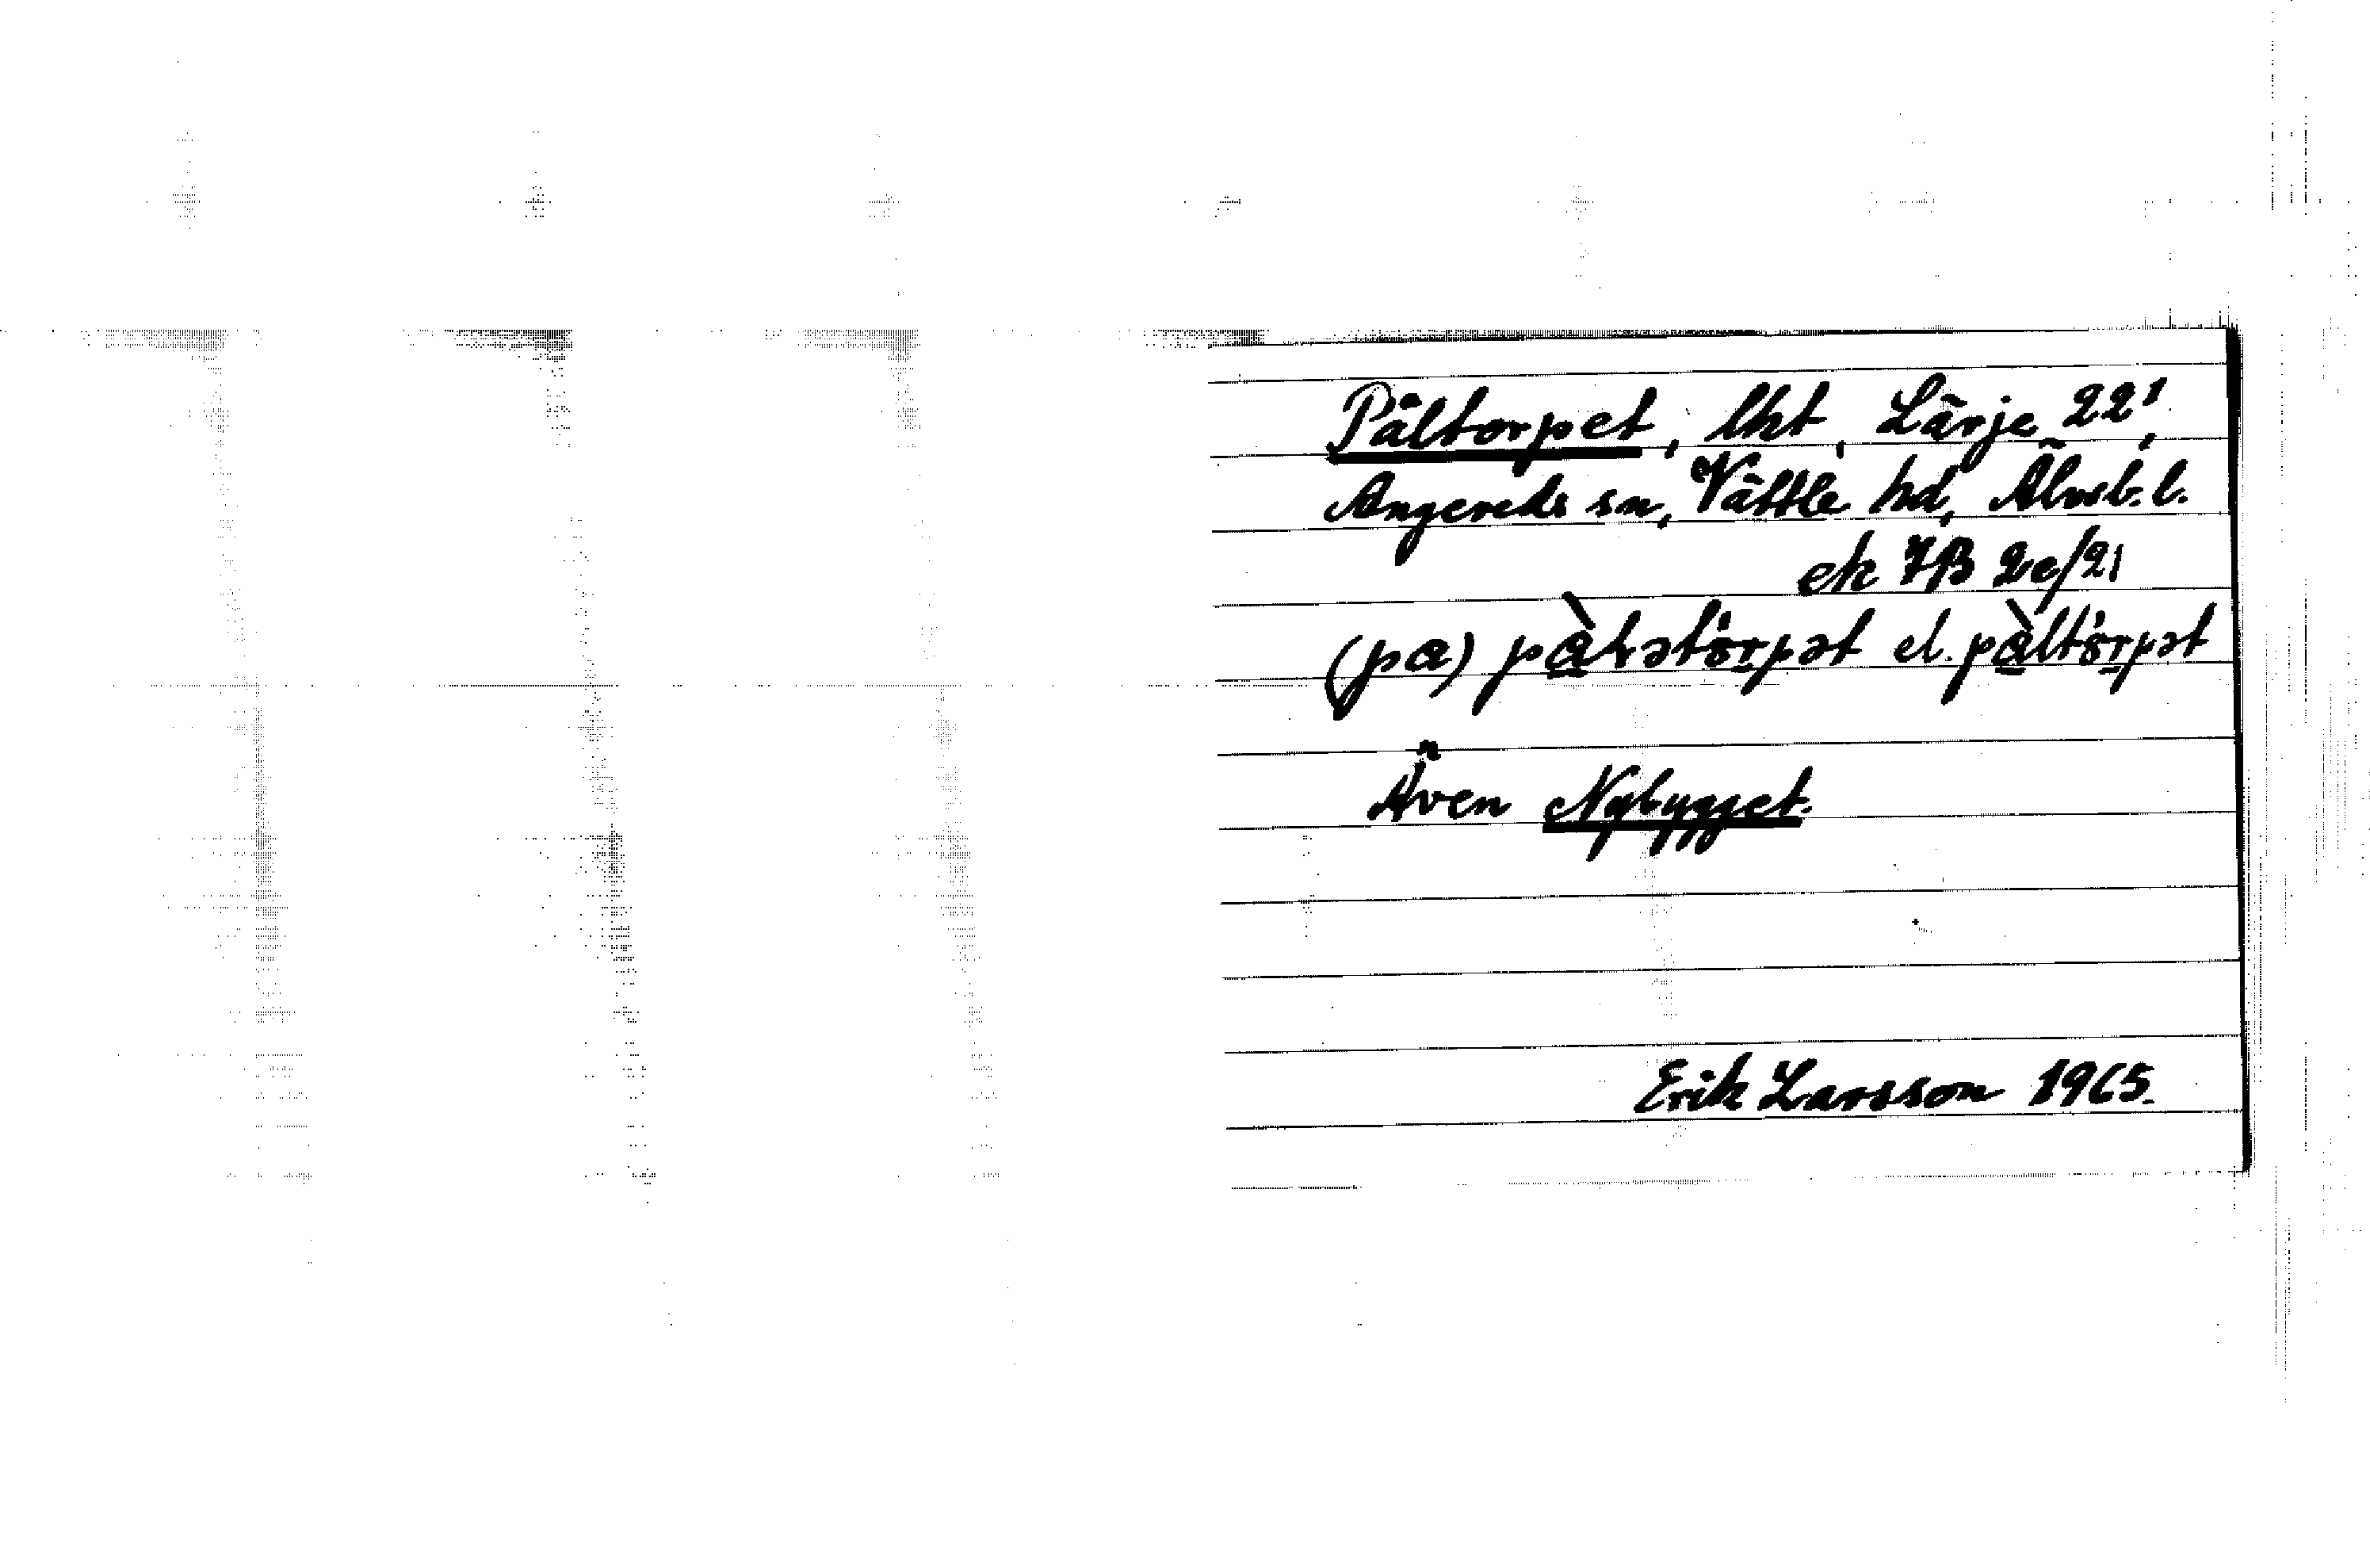 Påltorpet, lht, Lärje 22¹,
Angereds sn, Vättle hd, Älvsb. l.
ek 7B 2e/21
(pa) pàlǝtörpǝt el. pàltörpǝt
Även Nybygget.
Erik Larsson 1965.